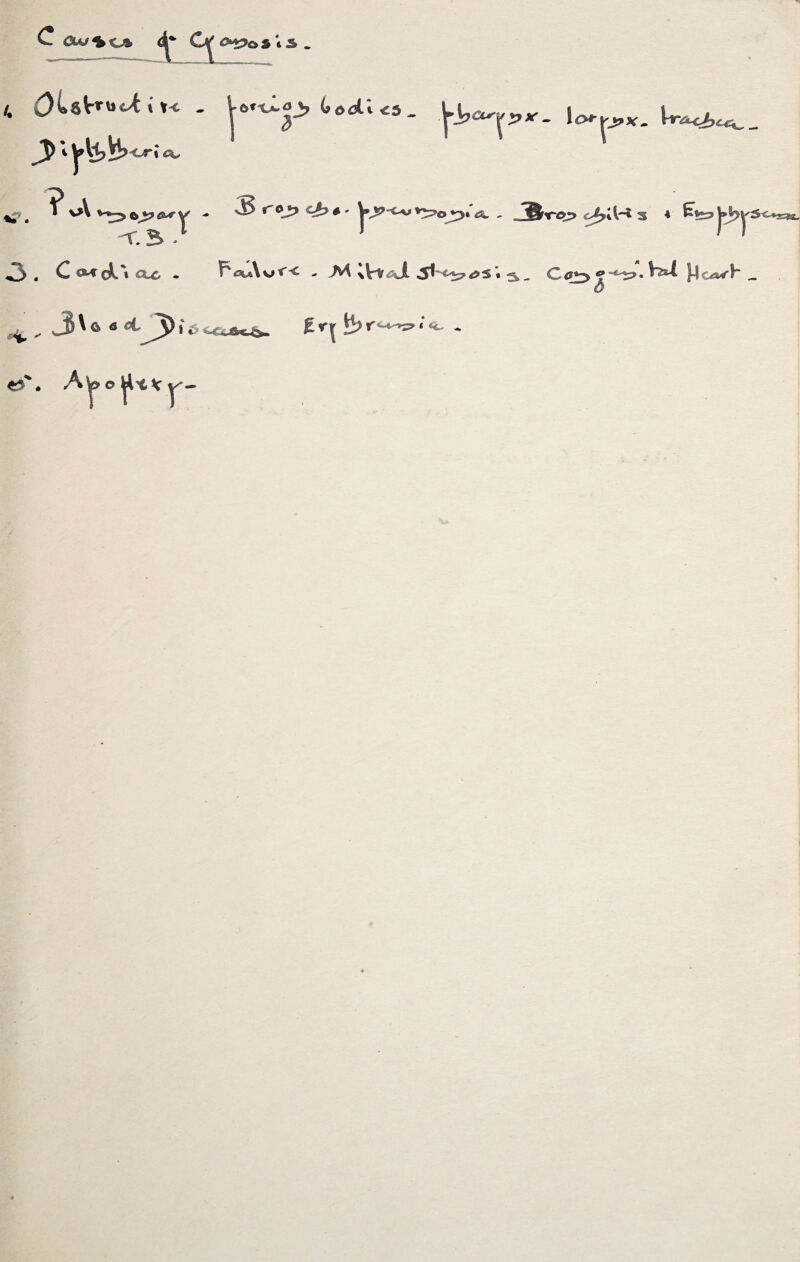 Causes of Cyanosis.
1. Obstructive - foreign bodies. pharynx. larynx. trachea.
Diphtheria
2. Pulmonary - Broncho-pneumonia. Bronchitis & Emphysema
T.B.
3. Cardiac. Failure. Mitral Stenosis. Congenital Heart.
4. Blood Disease. Erythremia.
5. Apoplexy.